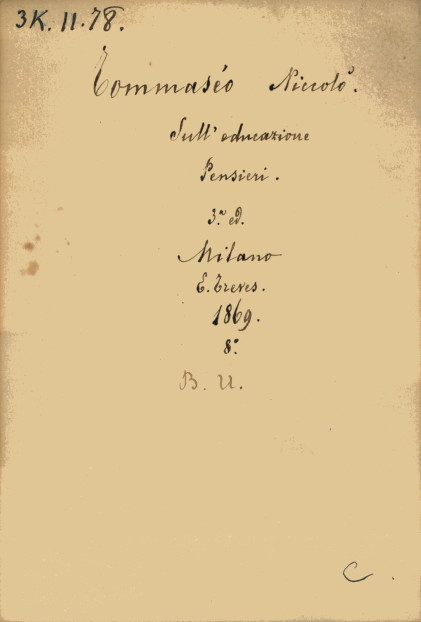 3K. II. 78.
Tommaséo Niccolò.
Sull' educazione
Pensieri.
3.a ed.
Milano
E. Treves.
1869.
8.°
B. U.
C.